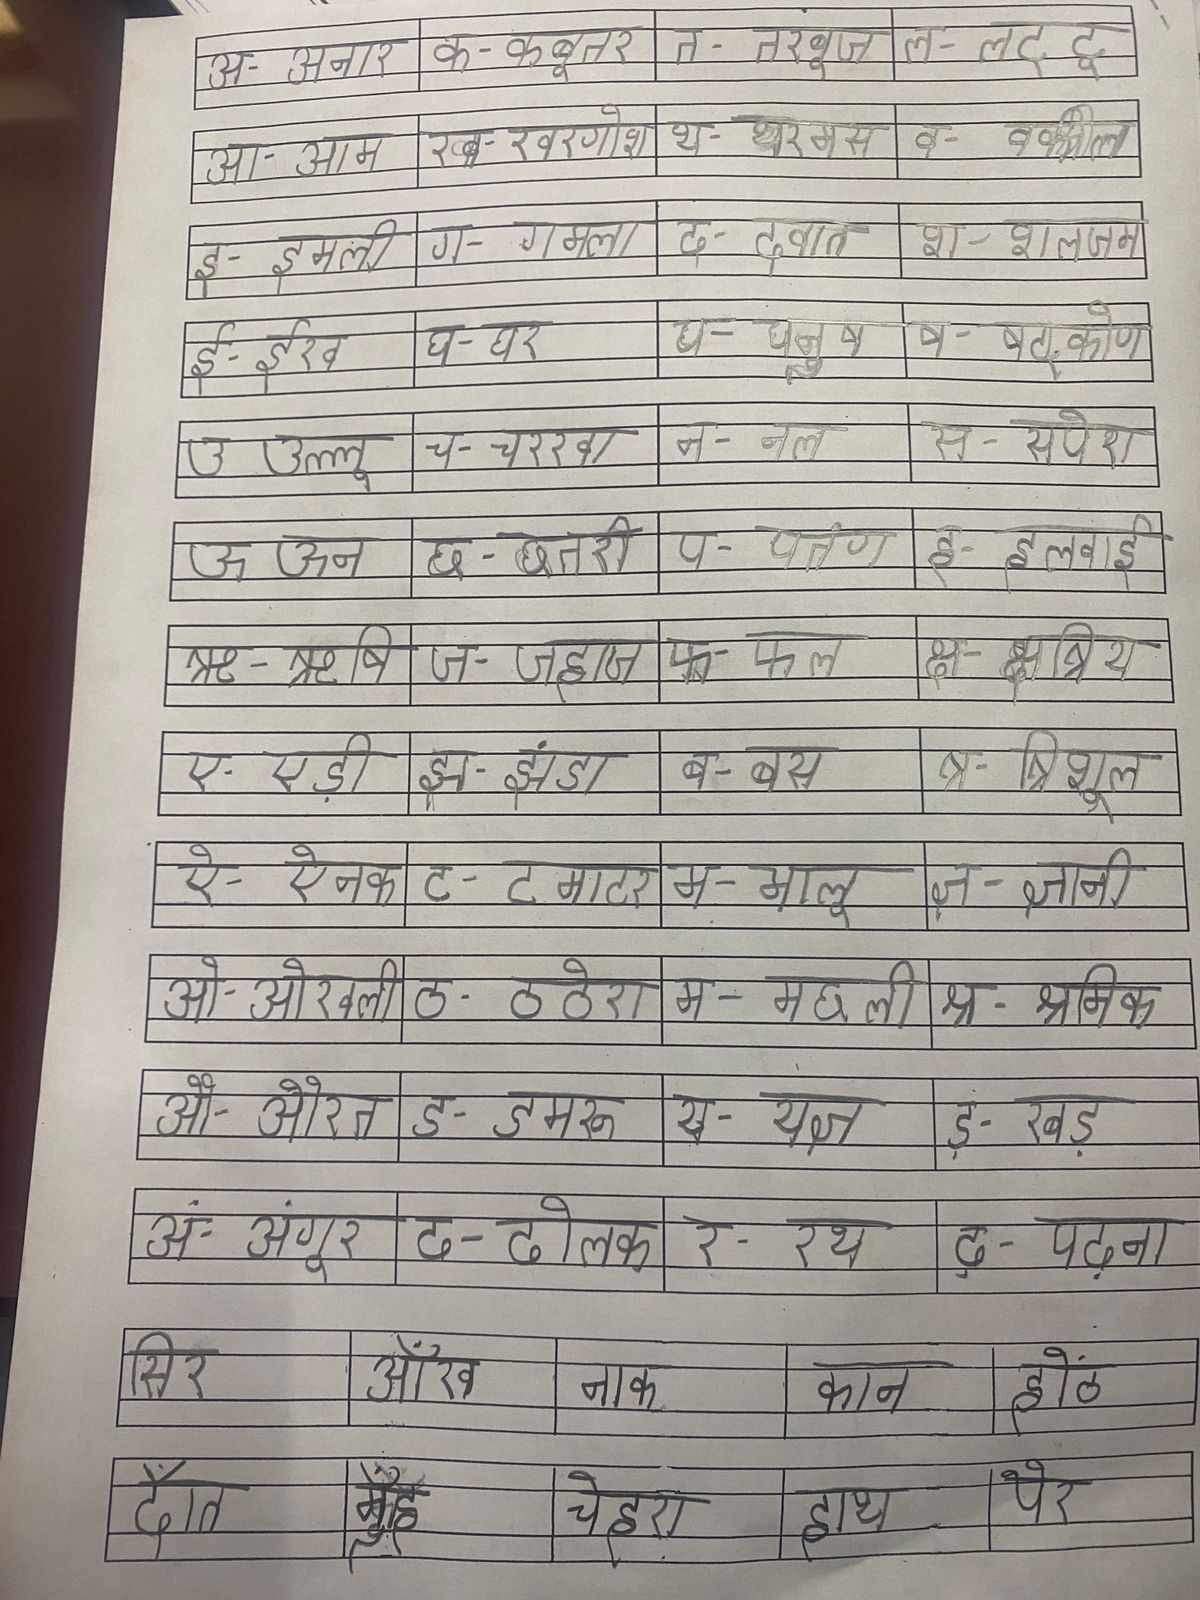 अ- अनार क- कबूतर त- तरबूज ल- लट् टू
आ- आम ख- खरगोश थ- थरमस व- वकील
इ- इमली ग- गमला द- दवात श- शलजम
ई- ईख घ- घर ध- धनुष ष- षट्कोण
उ उल्लू च- चरखा न- नल स- सपेरा
ऊ ऊन छ- छतरी प- पतंग ह- हलवाई
ऋ- ऋषि ज- जहाज फ- फल क्ष- क्षत्रिय
ए- एड़ी झ- झंडा ब- बस त्र- त्रिशूल
ऐ- ऐनक ट- टमाटर भ- भालू ज्ञ- ज्ञानी
ओ- ओखली ठ- ठठेरा म- मछली श्र- श्रमिक
औ- औरत ड- डमरू य- यज्ञ ड़- खड़
अं- अंगूर ढ- ढोलक र- रथ ढ़- पढ़ना
सिर आँख नाक कान होंठ
दाँत मुँह चेहरा हाथ पेर